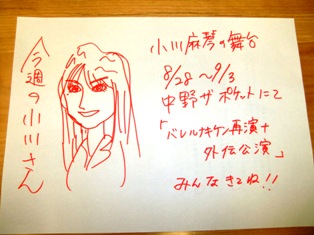 今週の小川さん
小川麻琴の舞台
8/28〜9/3
中野ザ・ポケットにて
「バレルナキケン再演+
外伝公演」
みんなきてね!!